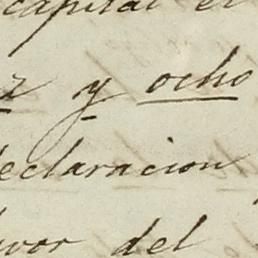 capital el
z y ocho
eclaracion
vor del